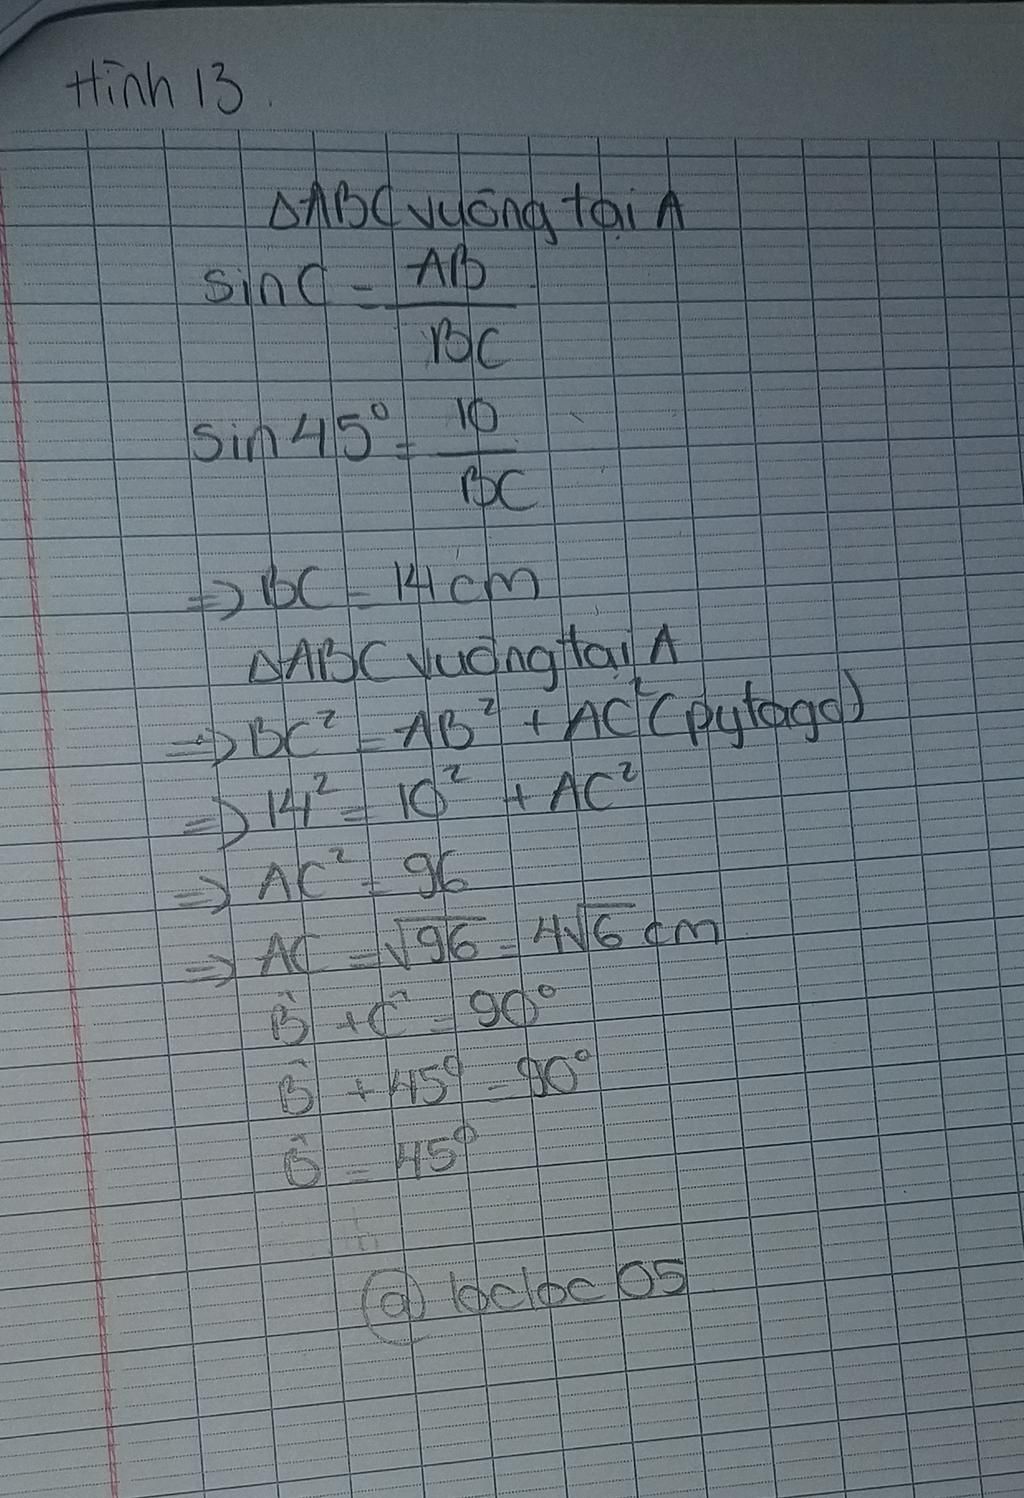 Hình 13.
ΔABC vuông tại A
sin C = AB / BC
sin 45° = 10 / BC
=> BC = 14 cm
ΔABC vuông tại A
=> BC² = AB² + AC² (pytago)
=> 14² = 10² + AC²
=> AC² = 96
=> AC = √96 = 4√6 cm
B̂ + Ĉ = 90°
B̂ + 45° = 90°
B̂ = 45°
@locloc05